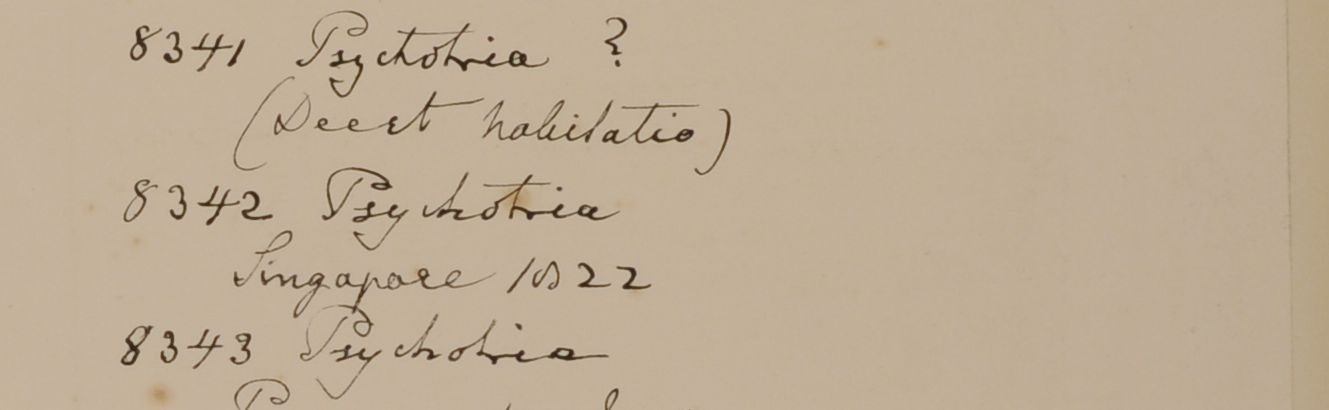 8341 Psychotria ?
(Deest habitatio)
8342 Psychotria
Singapore 1822
8343 Psychotria